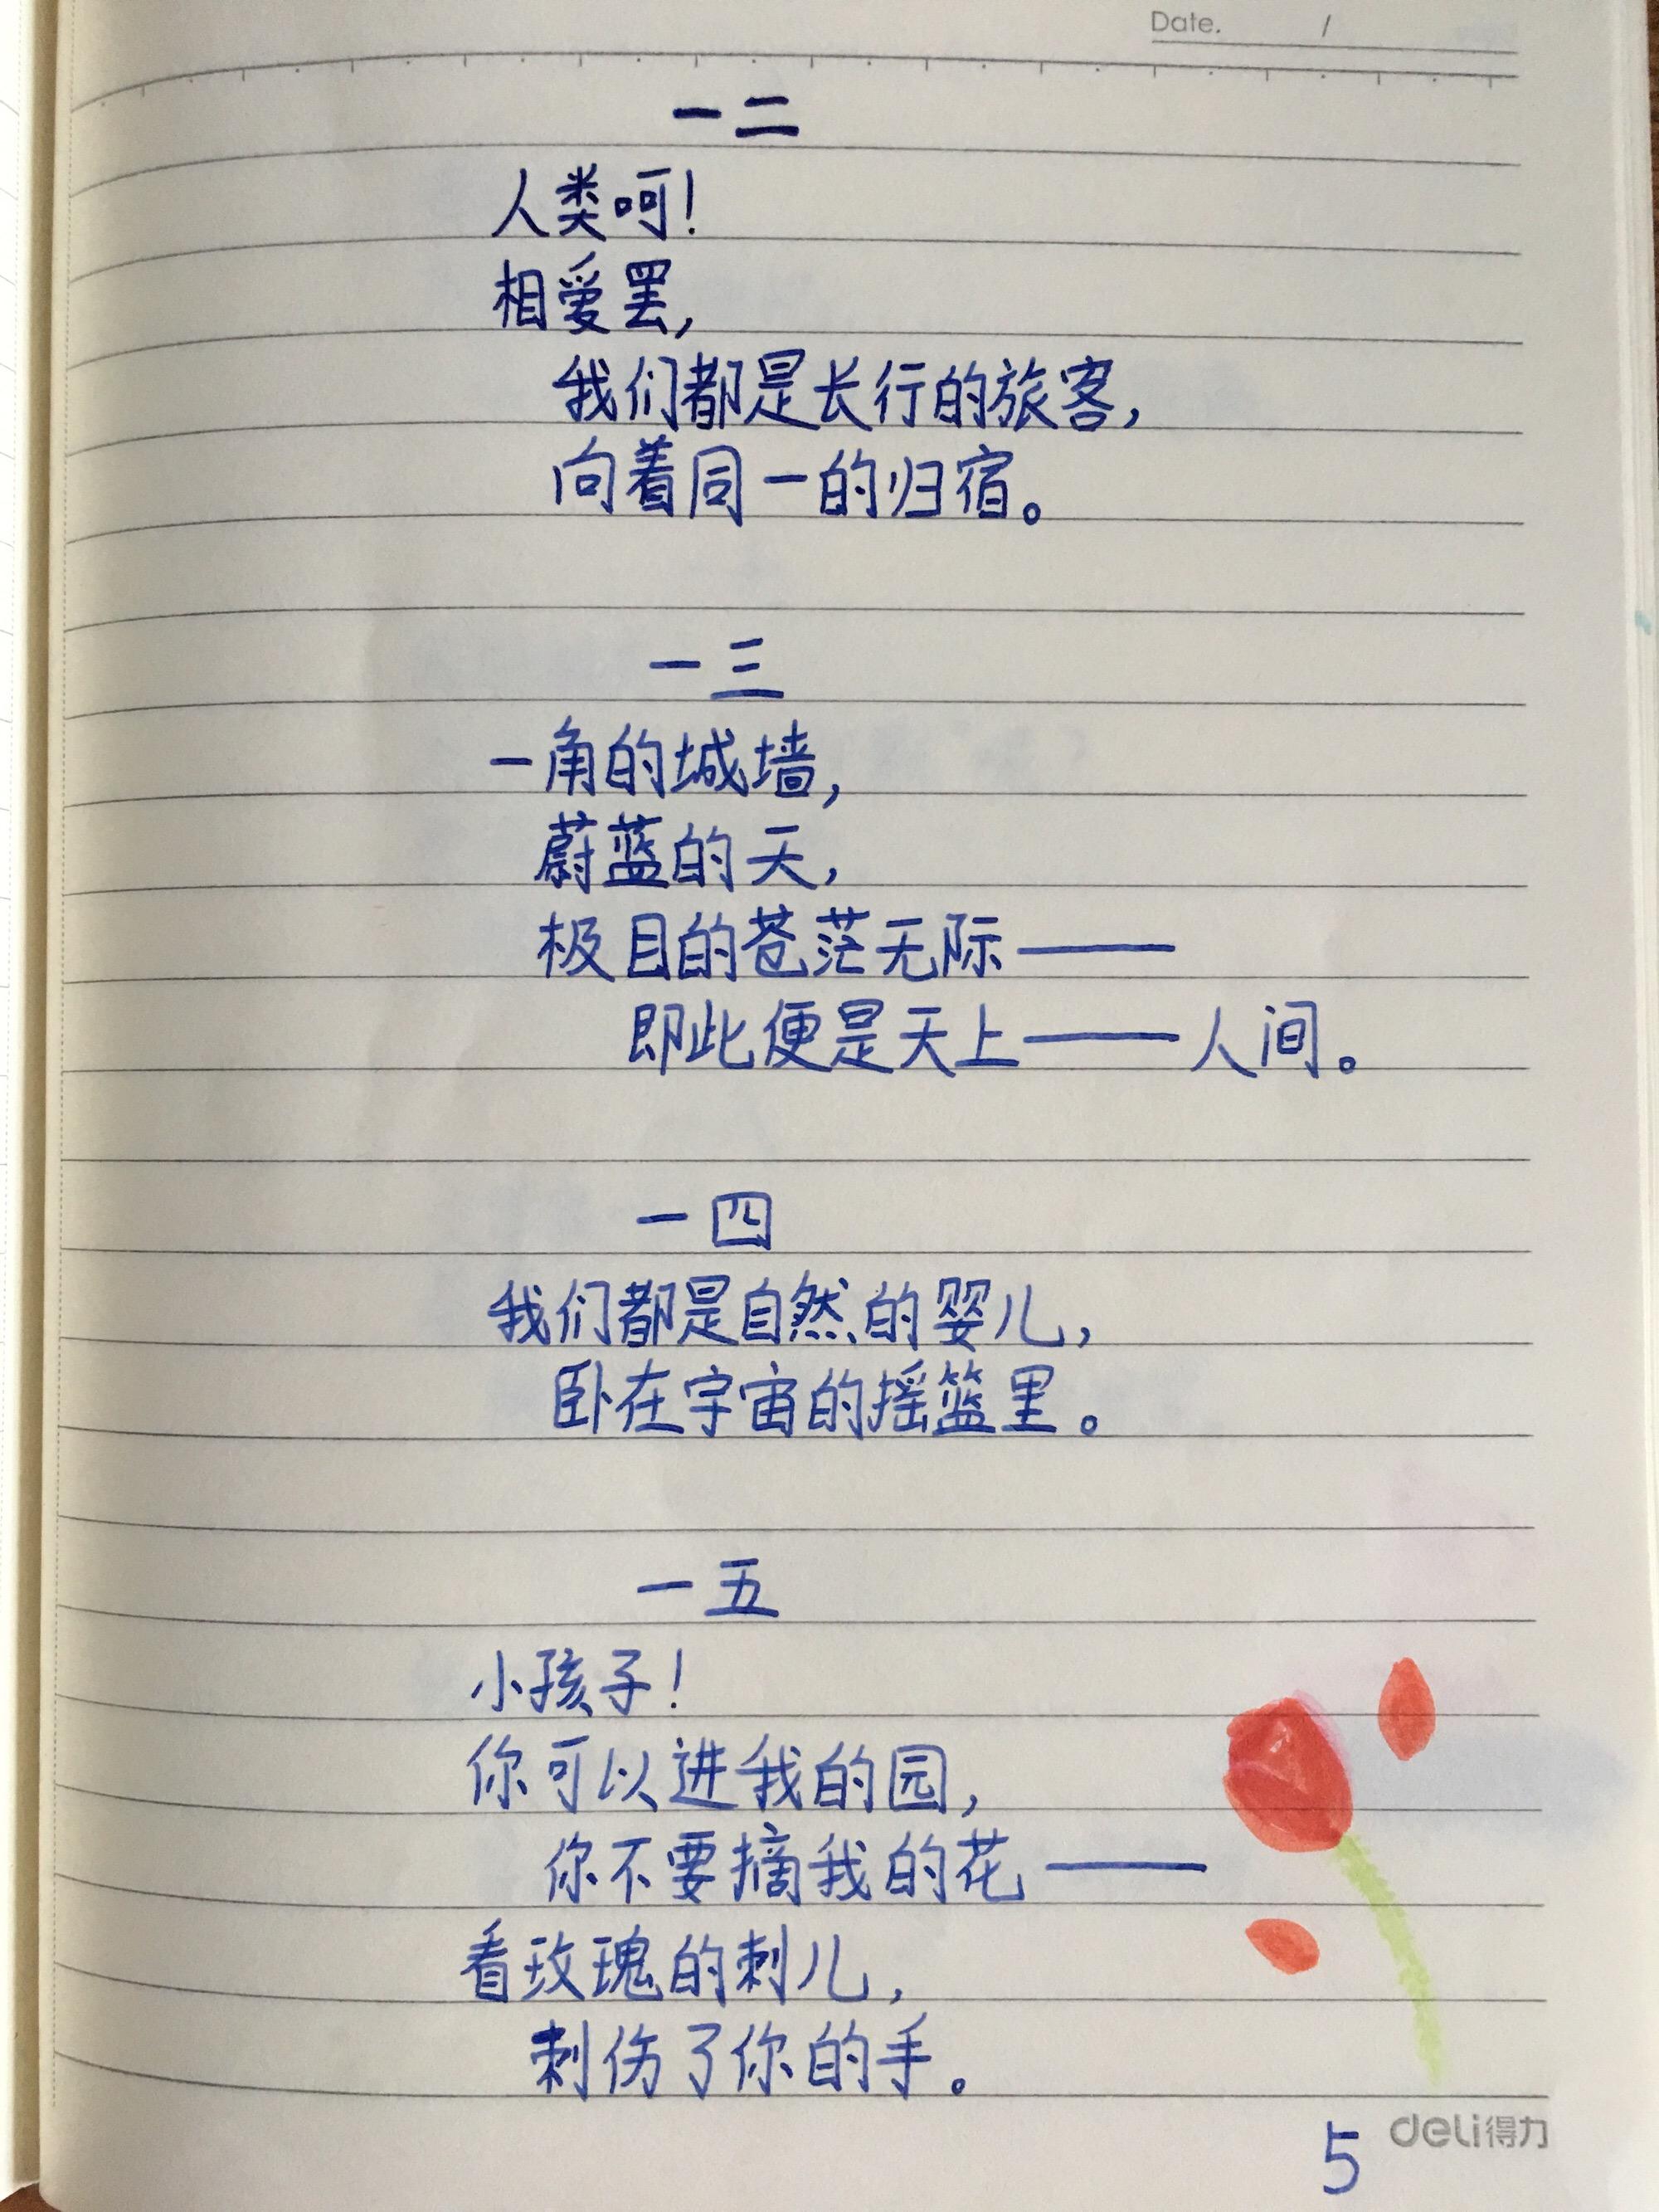 Date. /
一二
人类呵！
相爱罢，
我们都是长行的旅客，
向着同一的归宿。
一三
一角的城墙，
蔚蓝的天，
极目的苍茫无际——
即此便是天上——人间。
一四
我们都是自然的婴儿，
卧在宇宙的摇篮里。
一五
小孩子！
你可以进我的园，
你不要摘我的花——
看玫瑰的刺儿，
刺伤了你的手。
5 deli得力